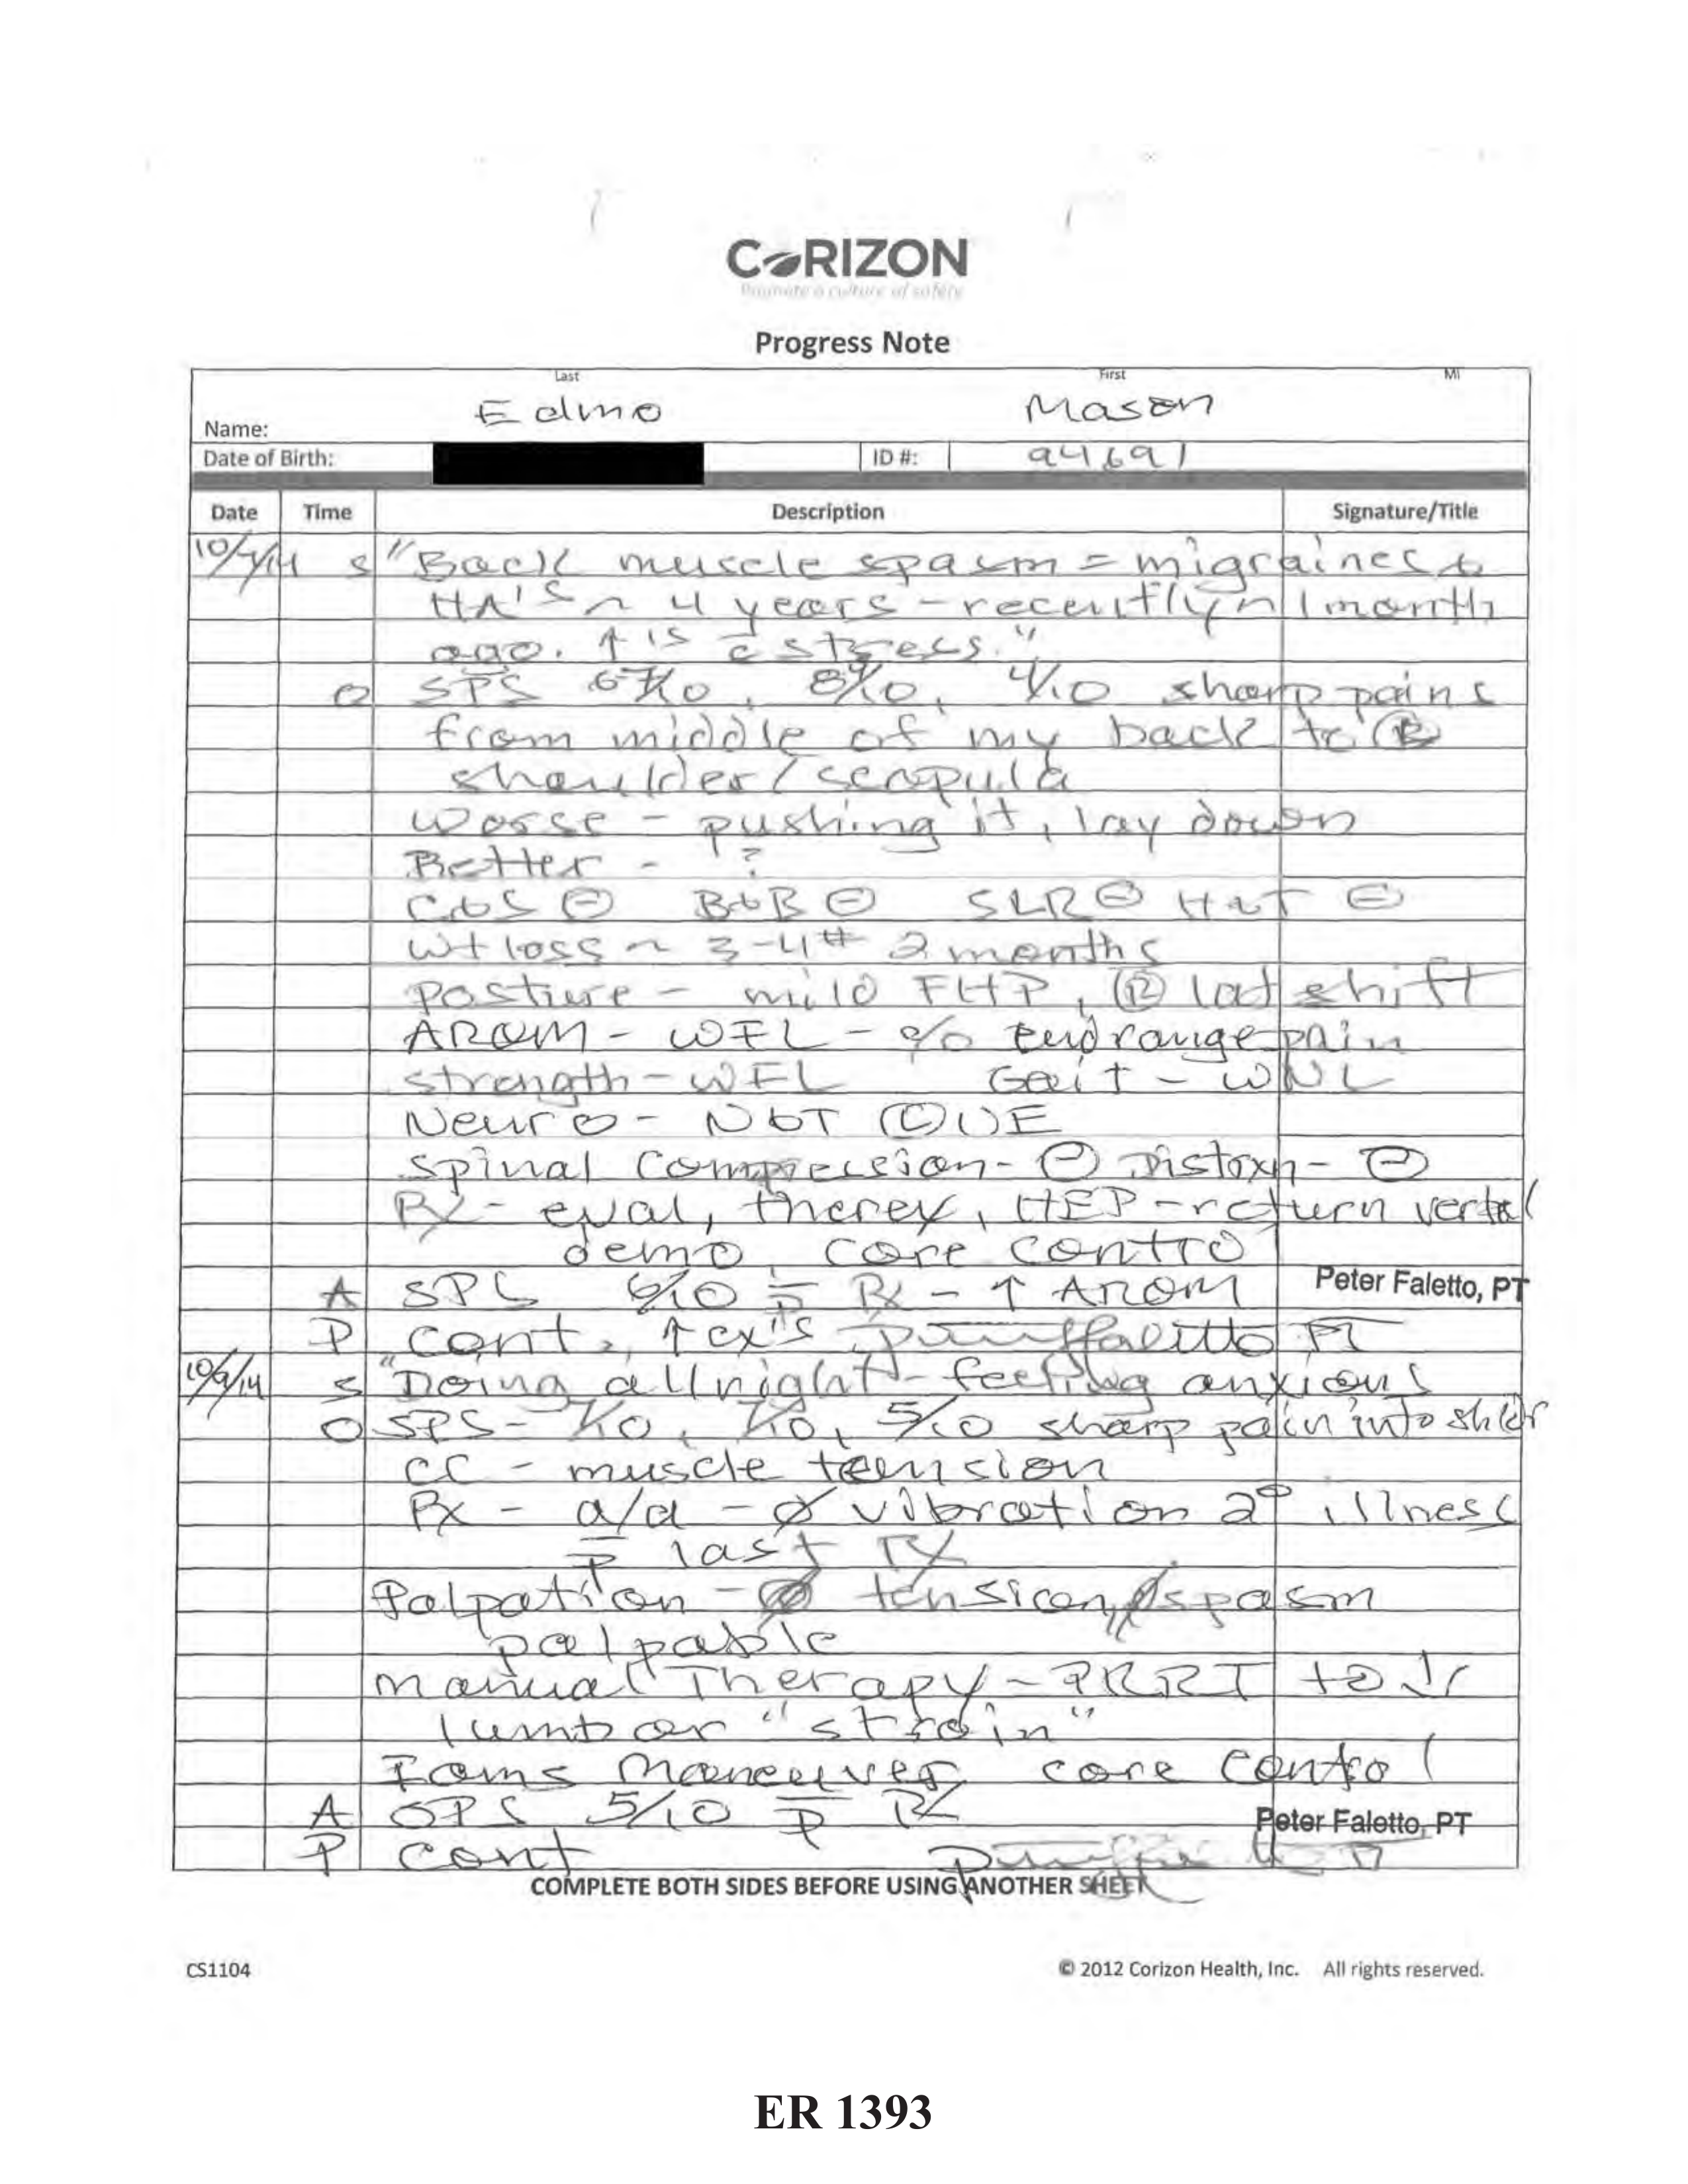 CORIZON
Promote a culture of safety
Progress Note
Last First MI
Name: Edmo Mason
Date of Birth: ID #: 94691
Date Time Description Signature/Title
10/7/14 S "Back muscle spasm = migraines &
HA'S ~ 4 years - recently ~ 1 month
ago. ↑'s c̄ stress."
O SPS 6/10, 8/10, 4/10 sharp pains
from middle of my back to Ⓑ
shoulder/scapula
Worse - pushing it, lay down
Better - ?
C&S ⊖ B&B ⊖ SLR ⊖ ⊖
Wt loss ~ 3-4# 2 months
Posture - mild FHP, Ⓡ lat shift
AROM - WFL - c/o End range pain
Strength - WFL Gait - WNL
Neuro - N&T Ⓛ UE
Spinal Compression - ⊖ Distrxn - ⊖
Rx - eval, therex, HEP - return verbal
demo, core control
A SPS 6/10 p̄ Rx - ↑ AROM Peter Faletto, PT
P Cont, ↑ ex's Faletto PT
10/9/14 S "Doing allright - feeling anxious
O SPS - 7/10, 7/10, 5/10 sharp pain into shldr
CC - muscle tension
Rx - a/a - ∅ vibration 2° illness
p̄ last Tx
Palpation - ∅ tension/spasm
palpable
Manual Therapy - PRRT to ↓
lumbar "strain"
Maneuver, core control
A SPS 5/10 p̄ Rx Peter Faletto, PT
P Cont
COMPLETE BOTH SIDES BEFORE USING ANOTHER SHEET
CS1104 © 2012 Corizon Health, Inc. All rights reserved.
ER 1393